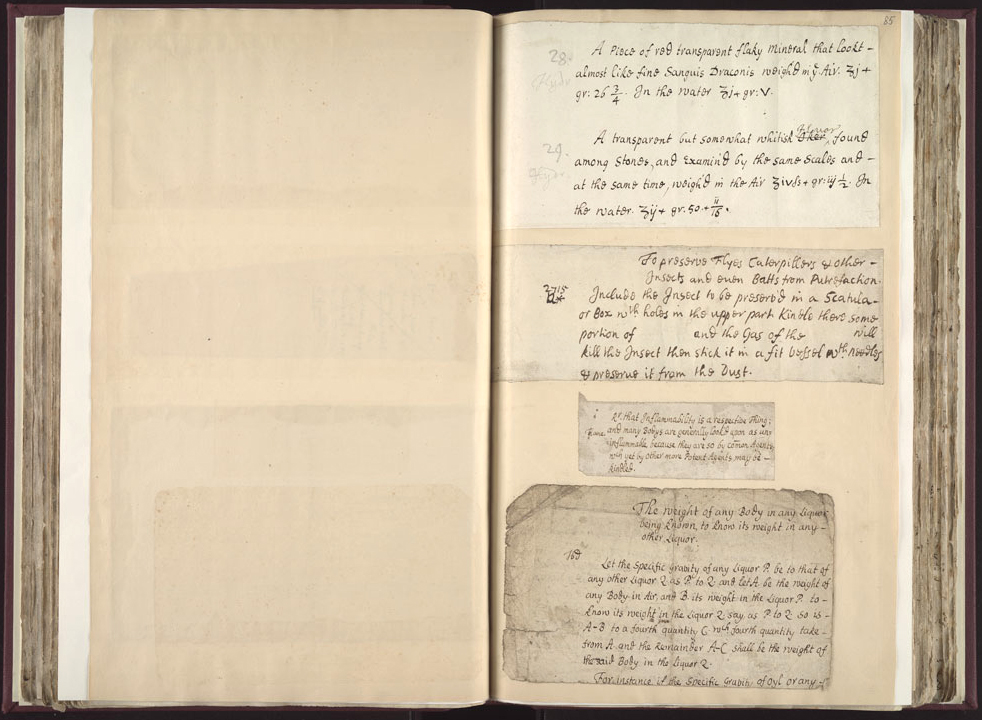 85
28.
Hydr.
A Piece of red transparent flaky Mineral that lookt -
almost like fine Sanguis Draconis weigh'd in yͤ Air. ʒj +
gr: 26 3/4. In the water ʒj + gr: V.
29.
Hydr.
A transparent but somewhat whitish Fluor found
among Stones, and Examin'd by the same Scales and -
at the same time, weigh'd in the Air ʒivſs + gr: iij 1/2. In
the water. ʒij + gr. 50 + 11/16.
To preserve Flyes Caterpillers & other -
Insects and even Batts from Putrefaction.
2715
Include the Insect to be preserv'd in a Scatula -
or Box wᵗʰ holes in the upper part Kindle there some
portion of and the Gas of the will
kill the Insect then stick it in a fit vessel wᵗʰ needles
& preserve it from the Dust.
that Inflammability is a respective Thing;
and many Bodys are generally look'd upon as un-
inflammable because they are so by com̄on Agents
wᶜʰ yet by other more Potent Agents may be -
kindled.
The weight of any Body in any Liquor
being known, to know its weight in any -
other Liquor.
Let the Specific Gravity of any Liquor P. be to that of
any other Liquor Q as P to Q and let A be the weight of
any Body in Air, and B its weight in the Liquor P. to -
know its weight in the Liquor Q say, as P to Q so is -
A-B to a fourth quantity C wᶜʰ fourth quantity take -
from A and the remainder A-C shall be the weight of
the said Body in the Liquor Q.
For instance if the Specific Gravity of Oyl or any -